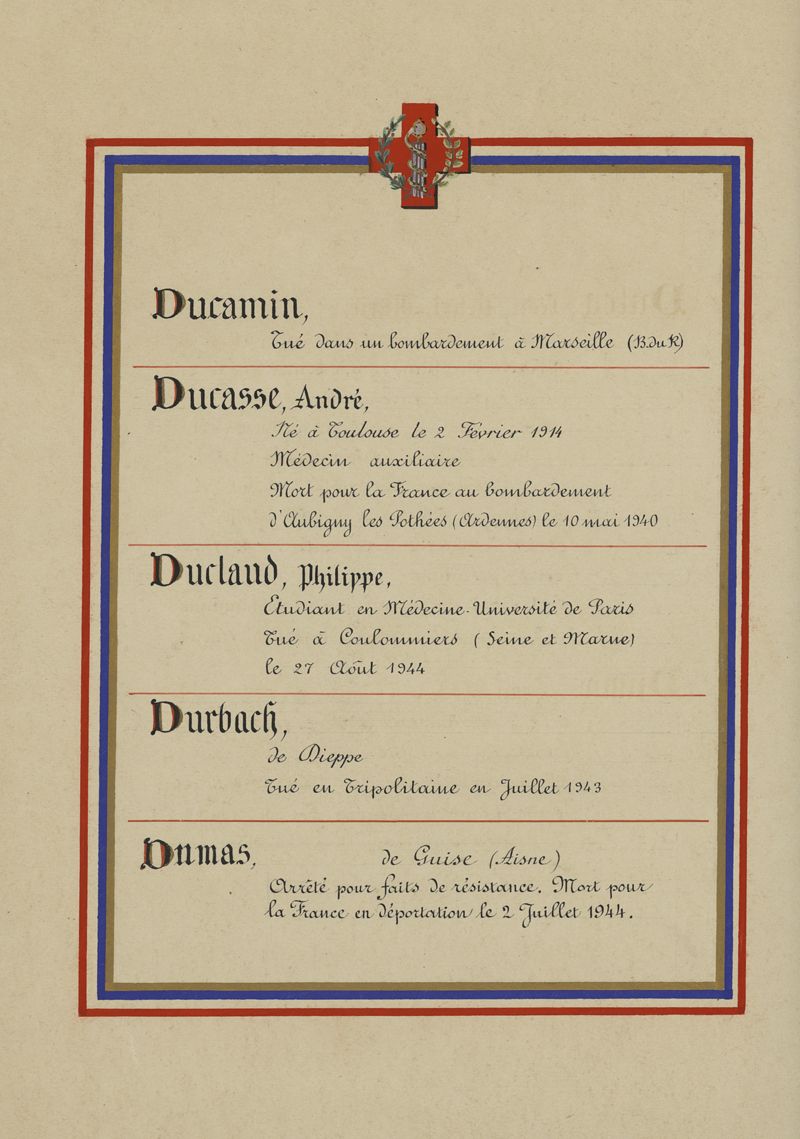 Ducamin,
Tué dans un bombardement à Marseille (B.du R)
Ducasse, André,
Né à Toulouse le 2 Février 1914
Médecin auxiliaire
Mort pour la France au bombardement
d'Aubigny les Pothées (Ardennes) le 10 mai 1940
Duclaud, Philippe,
Etudiant en Médecine - Université de Paris
Tué à Coulommiers (Seine et Marne)
le 27 Août 1944
Durbach,
de Dieppe
Tué en Tripolitaine en Juillet 1943
Dumas, de Guise (Aisne)
Arrêté pour faits de résistance. Mort pour
la France en déportation le 2 Juillet 1944.